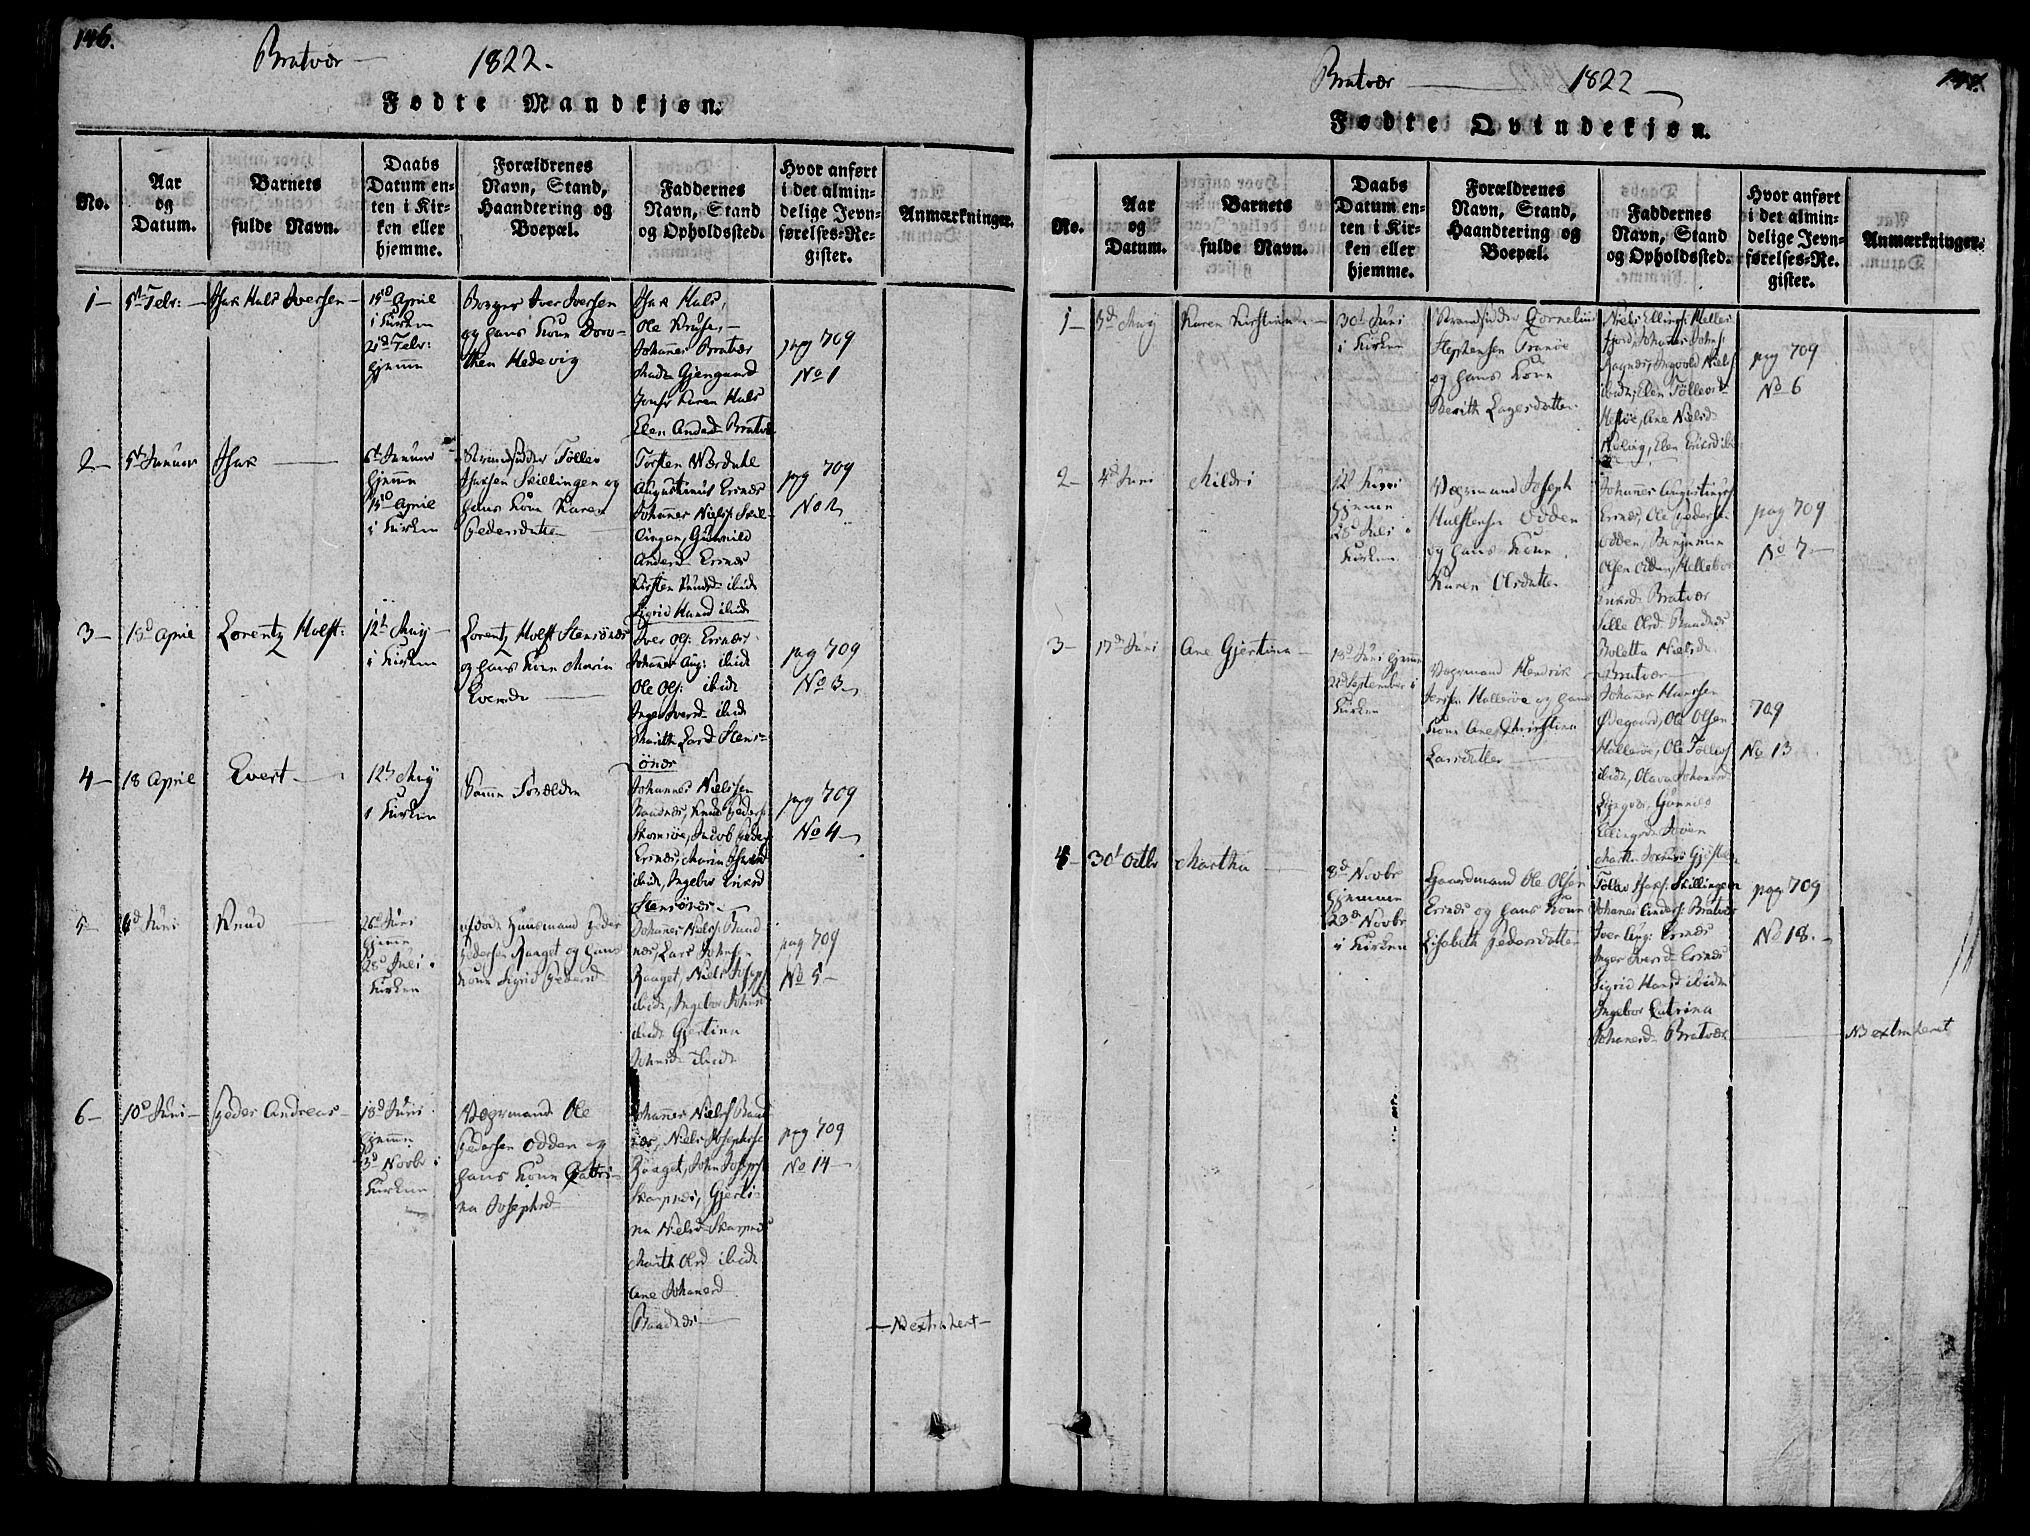 146.
Bratvær — 1822.
Fødte Mandkjøn.
No.
Aar
og
Datum.
Barnets
fulde Navn.
Daabs
Datum en-
ten i Kir-
ken eller
hjemme.
Forældrenes
Navn, Stand,
Haandtering og
Boepæl.
Faddernes
Navn, Stand
og Opholdssted.
Hvor anført
i det almin-
delige Jevn-
førelses-Re-
gister.
Anmærkninger.
1 —
5t Febr:
Isak Hals Iversen —
15d April
i Kirken
21d Febr:
hjemme
Borger Iver Iversen
og hans Kone Doro-
thea Hedevig
Isak Hals,
Ole Kruse, —
Johannes Bratvær
Gjengaard
Jomfr Karen Hals
Elen Andsd Bratvær
pag 709
No 1
2 —
5t Januar
Isak —
6t Januar
hjemme
15d April
i Kirken
Strandsidder Tøllev
Isaksen Skillingen og
hans Kone Karen
Pedersdatter
Torsten Nærdahl
Augustinus Ersnæs
Johannes Niels: Skil-
lingen, Gunnild
Andersd Ersnæs
Kirsten Knudsd ibide
Sigrid Hansd ibide
pag 709
No 2
3 —
13d April
Lorentz Holst:
12t Maij
i Kirken
Lorentz Holst Stensønæs
og hans Kone Maria
Evensd —
Iver Ols: Ersnæs
Johannes Aug: ibide
Ole Ols: ibide
Inger Iversd ibide
Marith Larsd Stens-
ønæs
pag 709
No 3
4 —
18 April
Evert —
12t Maij
i Kirken
Samme Forældre
Johannes Nielssen
Baadnæs, Knud Peders:
Skomsøe, Jacob Peders
Ersnæs, Maria Isaksd
ibide, Ingebor Eriksd
Stensønæs —
pag 709
No 4 —
5 —
8d Juni
Knud
26d Juni
hjemme
28d Juli i
Kirken
Huusmand Peder
Pedersen Raaget og hans
Kone Sigrid Pedersd
Johannes Niels: Baad
næs, Lars Johnsen
Raaget, Niels Joseps:
ibide, Ingebor Johnsd
ibide Gjertina
Johnsd ibide
pag 709
No 5 —
6 —
10d Juni —
Peder Andreas —
13d Juni
hjemme
3d Novbr i
Kirken
Vogrmand Ole
Pedersen Odden og
hans Kone Cathri-
na Josephsd
Johannes Niels: Baad
næs, Niels Josephse
Raaget, John Joseps:
Skarpnæs, Gjerti-
na Nielsd Skarpnæs
Marith Olsd ibide
Ane Johansd
Baadnæs —
pag 709
No 14 —
— NB extrahert —
Bratvær — 1822 —
Fødte Qvindekjøn.
No.
Aar
og
Datum.
Barnets
fulde Navn.
Daabs
Datum en-
ten i Kir-
ken eller
hjemme.
Forældrenes
Navn, Stand,
Haandtering og
Boepæl.
Faddernes
Navn, Stand
og Opholdssted.
Hvor anført
i det almin-
delige Jevn-
førelses-Re-
gister.
Anmærkninger.
1 —
3d Maij
Karen Kirstina —
30t Juni
i Kirken
Strandsidder Cornelius
Stephensen Tranøe
og hans Kone
Berith Lagesdatter
Niels Ellings: Helles
fjord, Johannes Johns:
Ragnæs, Ingvold Niels:
ibide, Elen Tøllevsd
Hestøe, Ane Nielsd
Elen Eriksd ibid
pag 709
No 6
2 —
4d Juni
Mildri
12t Juni
hjemme
28d Juli i
Kirken
Vogrmand Joseph
Halstensen Odden
og hans Kone
Karen Olsdatter
Johannes Augustinus:
Ersnæs, Ole Pedersen
Odden, Benjamin
Olsen Odden, Hellebor
Bratvær
Sille Olsd Baadnæs
Boletta Nielsd
Bratvær —
pag 709
No 7 —
3 —
17d Juni
Ane Gjertina —
18d Juni hjemme
21d September i
Kirken
Vogrmand Hendrik
Iversen Hallerøe og hans
Kone Ane Christina
Larsdatter —
Johanes Hanssen
Ødegaard, Ole Olsen
Hallerøe, Ole Tøllevs:
ibide, Olava Johansd
Gunnild
Ellingsd
709
No 13
4 —
30t Octbr
Martha
8d Novbr
hjemme
23d Novbr
i Kirken
Gaardmand Ole Olsen
Ersnæs og hans Kone
Lisabeth Pedersdatter
Tøllev Isaks: Skillingen
Johanes Anders: Bratvær
Iver Aug: Ersnæs
Inger Iversd Ersnæs
Sigrid Hansd ibide
Ingebor Catrina
Johanesd Bratvær
pag 709
No 18 —
NB extraheret